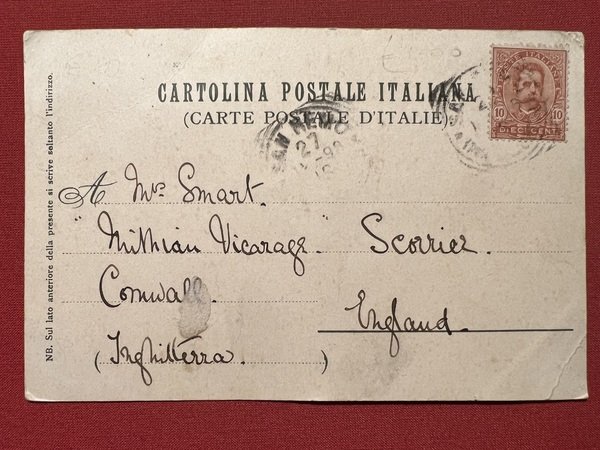 CARTOLINA POSTALE ITALIANA
(CARTE POSTALE D'ITALIE)
POSTE ITALIANE
10 10
DIECI CENT.
SAN REMO
27
98
A Mrs Smart.
"Mithian Vicarage" Scorrier.
Cornwall. England.
(Inghilterra.)
NB. Sul lato anteriore della presente si scrive soltanto l'indirizzo.